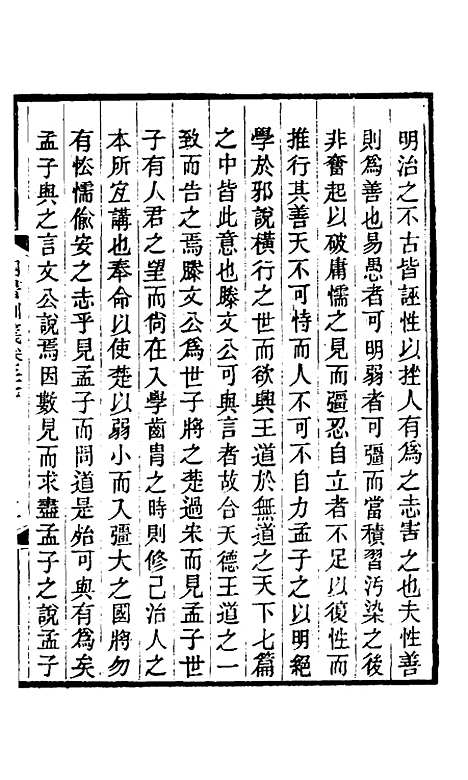 明治之不古皆誣性以挫人有為之志害之也夫性善
則為善也易愚者可明弱者可彊而當積習污染之後
非奮起以破庸懦之見而彊忍自立者不足以復性而
推行其善天不可恃而人不可不自力孟子之以明絕
學於邪說橫行之世而欲興王道於無道之天下七篇
之中皆此意也滕文公可與言者故合天德王道之一
致而告之焉滕文公為世子將之楚過宋而見孟子世
子有人君之望而尚在入學齒胄之時則修己治人之
本所宜講也奉命以使楚以弱小而入彊大之國將勿
有怂懦偷安之志乎見孟子而問道是始可與有為矣
孟子與之言文公說焉因數見而求盡孟子之說孟子